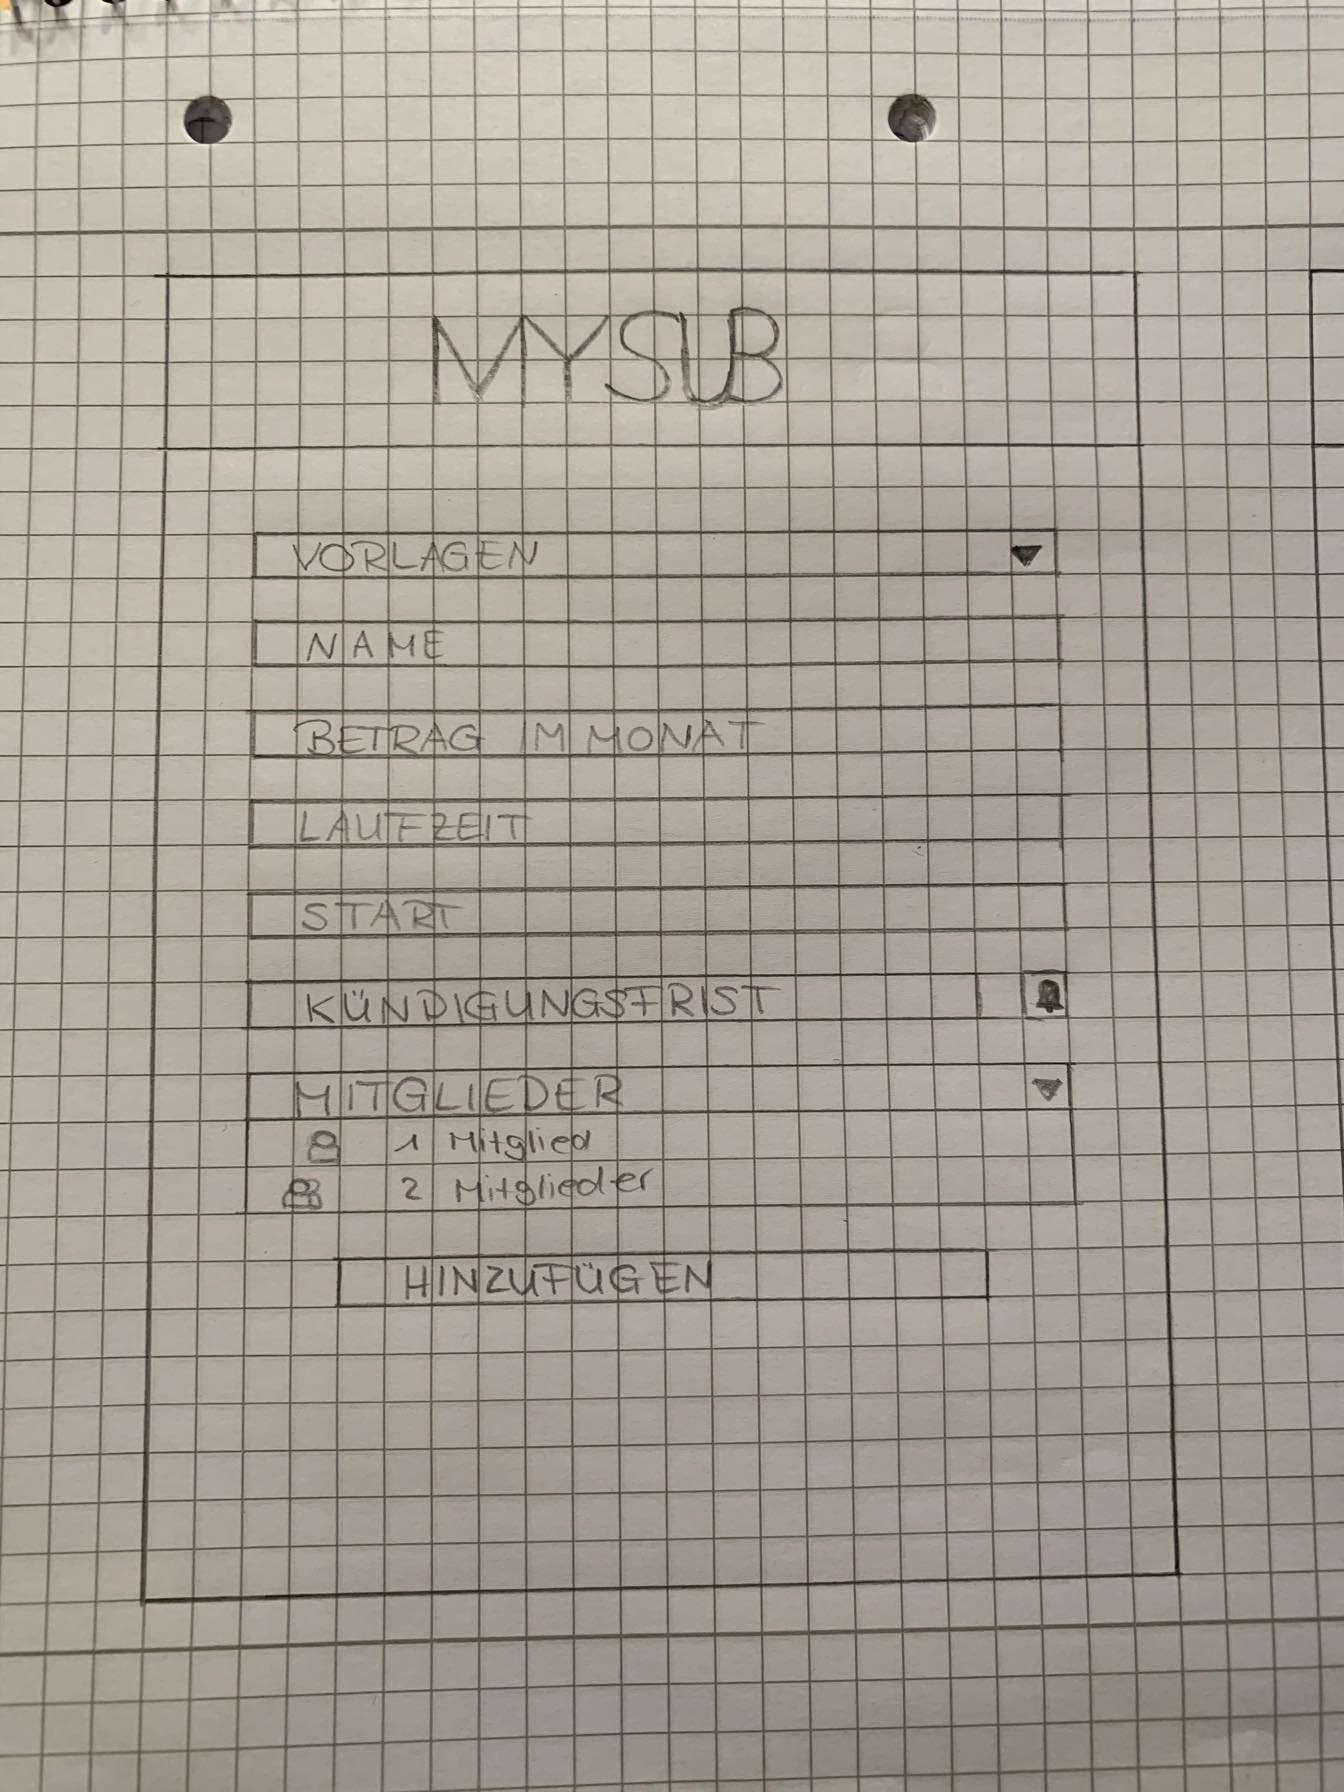 MYSUB
VORLAGEN
NAME
BETRAG IM MONAT
LAUFZEIT
START
KÜNDIGUNGSFRIST
MITGLIEDER
1 Mitglied
2 Mitglieder
HINZUFÜGEN